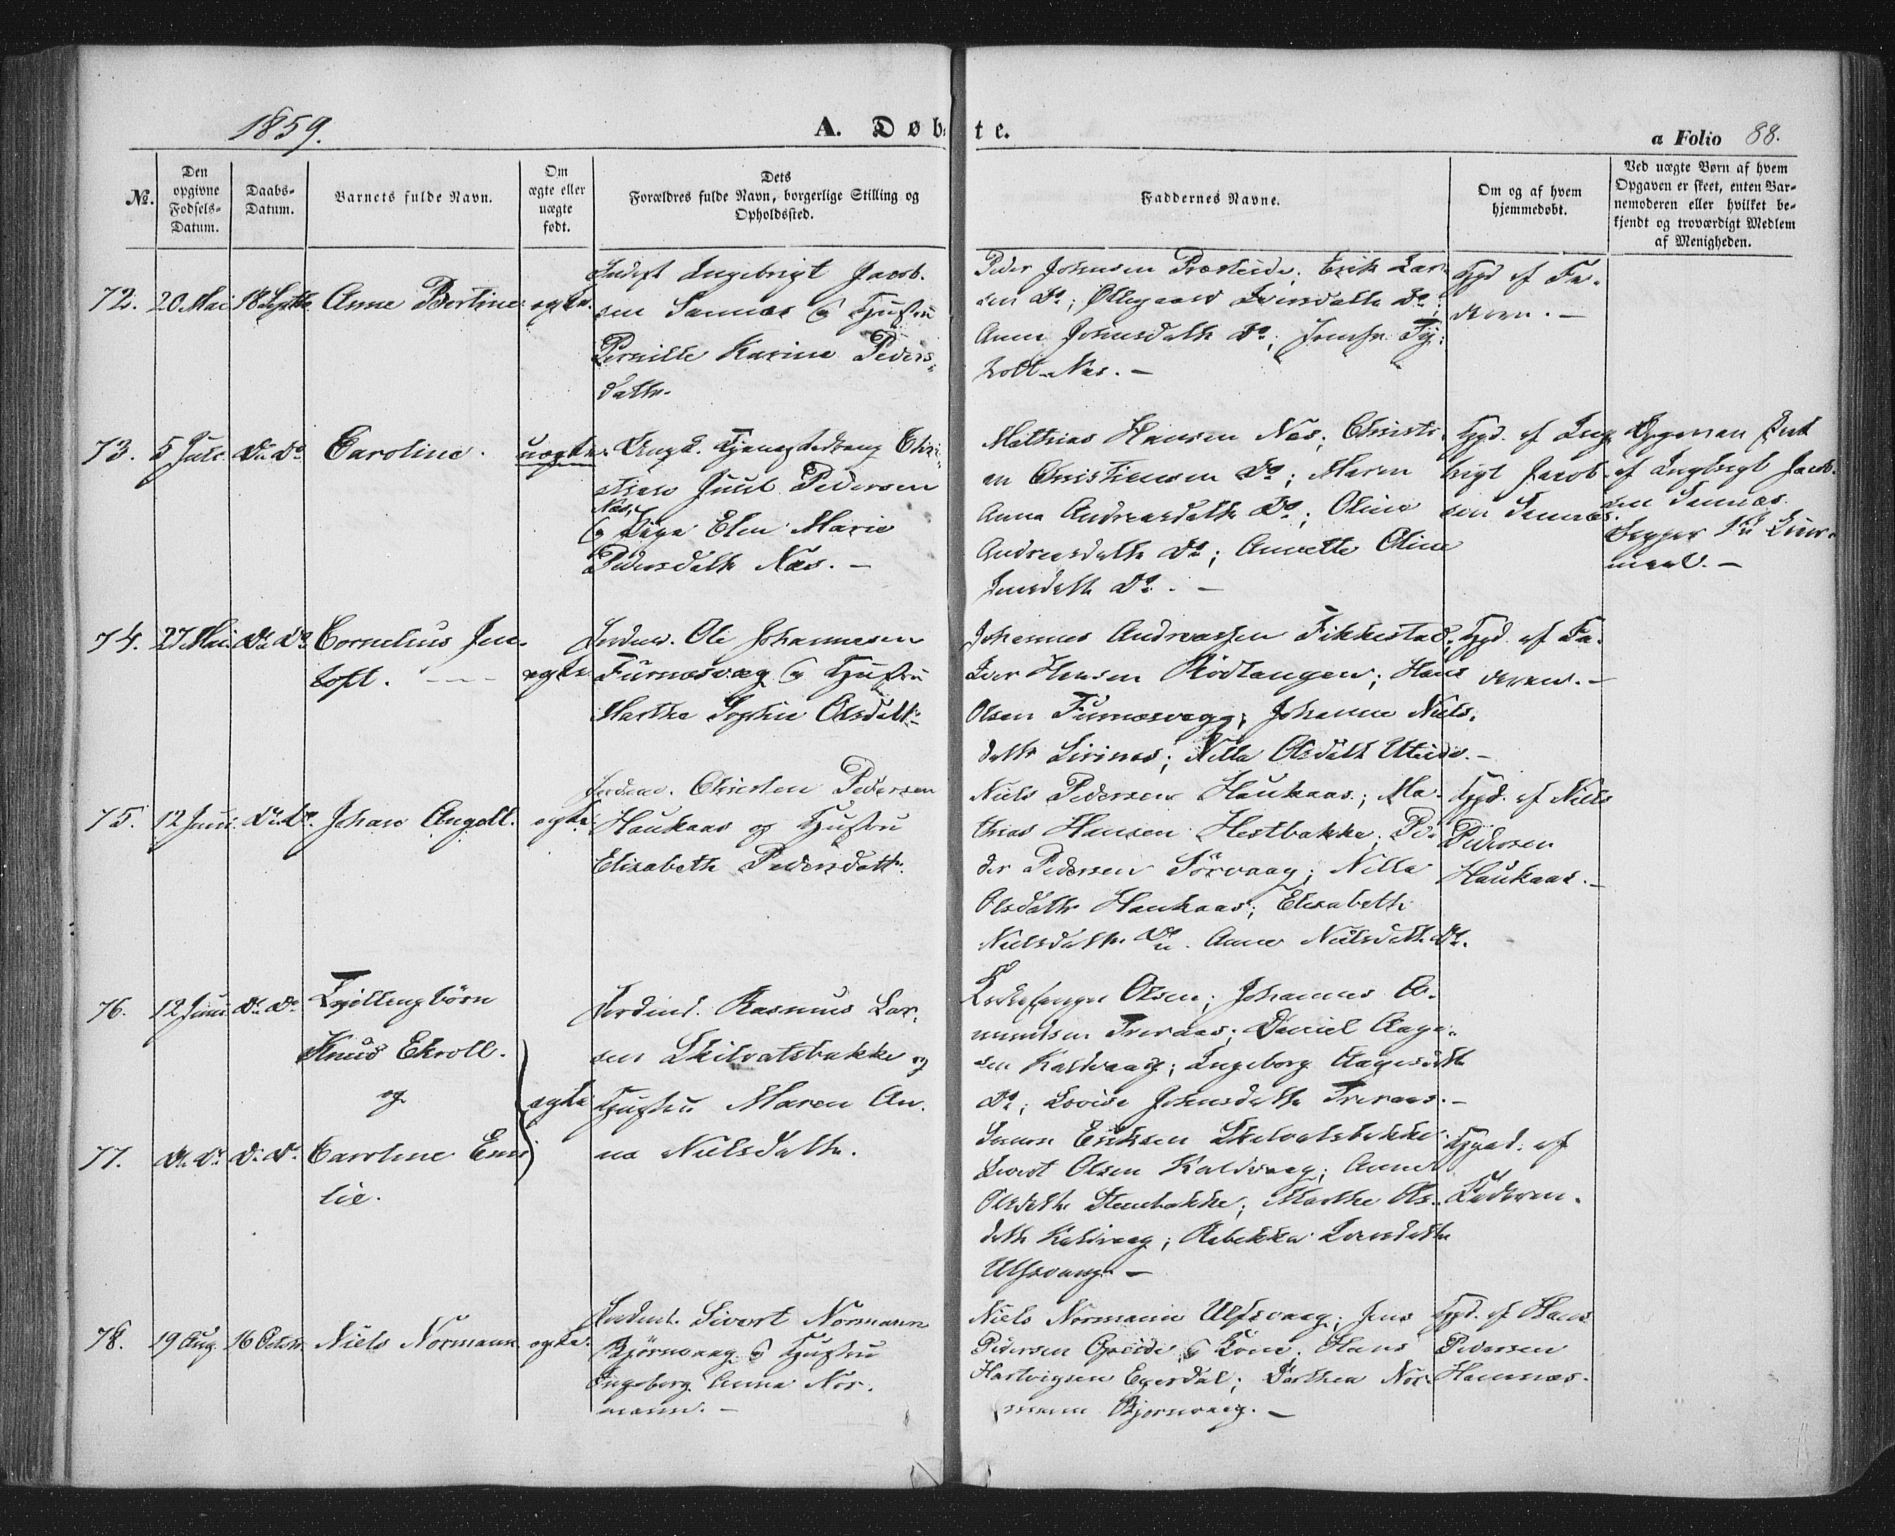 1859.
A. Døbte.
a Folio 88.
No.
Den opgivne Fødsels-Datum.
Daabs-Datum.
Barnets fulde Navn.
Om ægte eller uægte født.
Dets Forældres fulde Navn, borgerlige Stilling og Opholdssted.
Faddernes Navne.
Om og af hvem hjemmedøbt.
Ved uægte Børn af hvem Opgaven er skeet, enten Barnemoderen eller hvilket bekjendt og troværdigt Medlem af Menigheden.
72. 20 Mai 18 Septbr Anne Bertine ægte.
Inderst Ingebrigt Jacob-
sen Sannæs og Hustru
Pernille Karine Peders-
datter.
Peder Johnsen Præsteide; Erik Lar-
sen Do; Ollegaard Iversdatter Do;
Anne Johnsdatter Do;
Nes. —
Hjd. af Fa-
deren. —
73. 5 Juli Do Do Caroline. uægte.
Ungk. Chri-
stian Juul Pedersen
Næs
og Pige Elen Marie
Pedersdatter Næs. —
Mathias Hansen Nes; Christi-
an Christiansen Do; Maren
Anna Andreasdatter Do; Oline
Andreasdatter Do; Annette Oline
Jensdatter Do. —
Hjd. af Ing-
brigt Jacob-
sen Sannæs.
Opgaven skeet
af Ingbrigt Jacob-
sen Sannæs.
Begges 1ste Leier-
maal. —
74. 27 Mai Do Do Cornelius Jen-
toft. ægte
Ole Johannesen
Furnæsvæg og Hustru
Marthe Sophie Olsdatter
Johannes Andreassen Fikkestad;
Iver Hansen Rødtangen; Hans
Olsen Furnæsvæg; Johanne Niels-
datter; Nilla Olsdatter Uteide. —
Hjd. af Fa-
deren. —
75. 12 Juni Do Do Johan Angell. ægte
Christen Pedersen
Haukaas og Hustru
Elisabeth Pedersdatter.
Niels Pedersen Haukaas; Ma-
thias Hansen Hestbakke; Pe-
der Pedersen Sørvaag; Nilla
Olsdatter Haukaas; Elisabeth
Nielsdatter Do. Anne Nielsdatter Do.
Hjd. af Niels
Pedersen
Haukaas. —
76. 12 Juni Do Do Tvillingbørn
Knud Ekroll.
og
77. Do Do Do Do Caroline Emi-
lie.
ægte
Rasmus Lar-
sen Skilvatsbakke og
Hustru Maren An-
na Nielsdatter.
Olsen; Johannes A-
mundsen Treraas; Daniel Aage-
sen Kaldvaag; Ingeborg Aagesdatter
Do; Lovise Johnsdatter Treraas. —
Simon Eriksen Skilvatsbakke
Sivert Olsen Kaldvaag; Anne
Olsdatter Stenbakke; Marthe Ols-
datter Kaldvaag; Rebekka
Ulfsvaag. —
Hjd. af
Faderen.
78. 19 Aug. 16 Octobr. Niels Normann ægte.
Sivert Normann
Bjørnvaag og Hustru
Ingeborg Anna Nor-
mann. —
Niels Normann Ulfsvaag; Jens
Pedersen og Kone. Hans
Hartvigsen Egerdal; Dorthea Nor-
mann Bjørnvaag. —
Hjd. af Hans
Pedersen
Hamnæs.